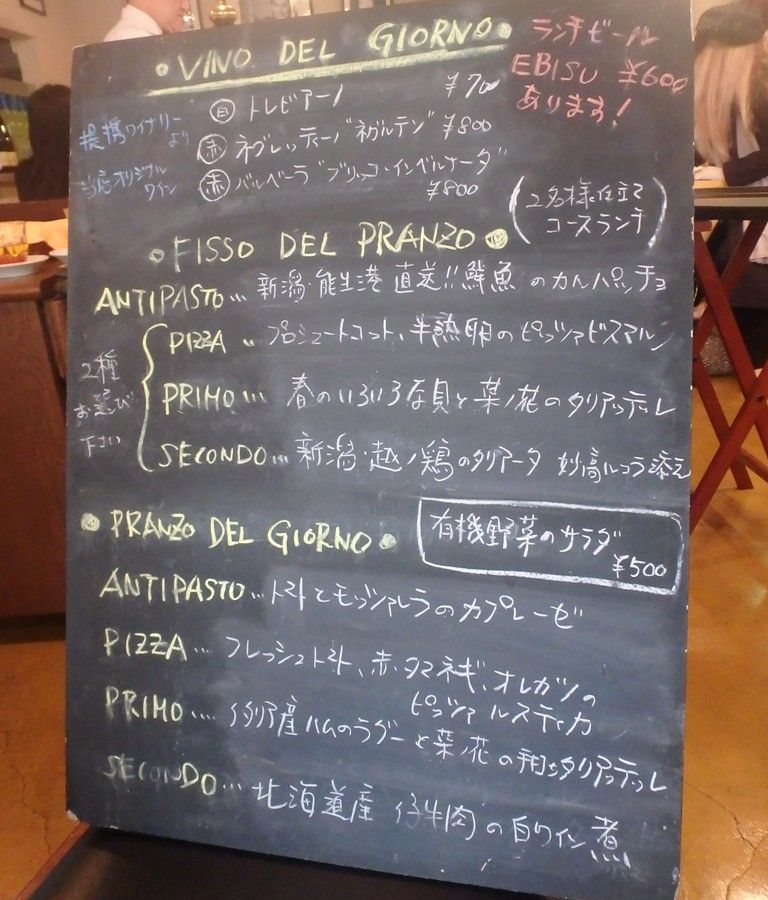 • VINO DEL GIORNO •
ランチビール
EBISU ¥600
あります!
提携ワイナリーより
当店オリジナルワイン
白 トレビアーノ ¥700
赤 ネグレッティーノ "ネガルテン" ¥800
赤 バルベーラ "ブリッコ・インベルナーダ"
¥800
(2名様仕立て
コースランチ)
• FISSO DEL PRANZO •
ANTIPASTO... 新潟・能生港 直送!!鮮魚 のカルパッチョ
2種
お選び
下さい
PIZZA .. プロシュートコット、半熟卵のピッツァビスマルク
PRIMO... 春のいろいろな貝と菜ノ花のタリアッテレ
SECONDO... 新潟・越ノ鶏のタリアータ 妙高ルコラ添え
• PRANZO DEL GIORNO •
有機野菜のサラダ
¥500
ANTIPASTO... トマトとモッツァレラのカプレーゼ
PIZZA... フレッシュトマト、赤タマネギ、オレガノの
ピッツァ ルスティカ
PRIMO.... イタリア産ハムのラグーと菜ノ花の手打ちタリアッテレ
SECONDO... 北海道産 仔牛肉の白ワイン煮